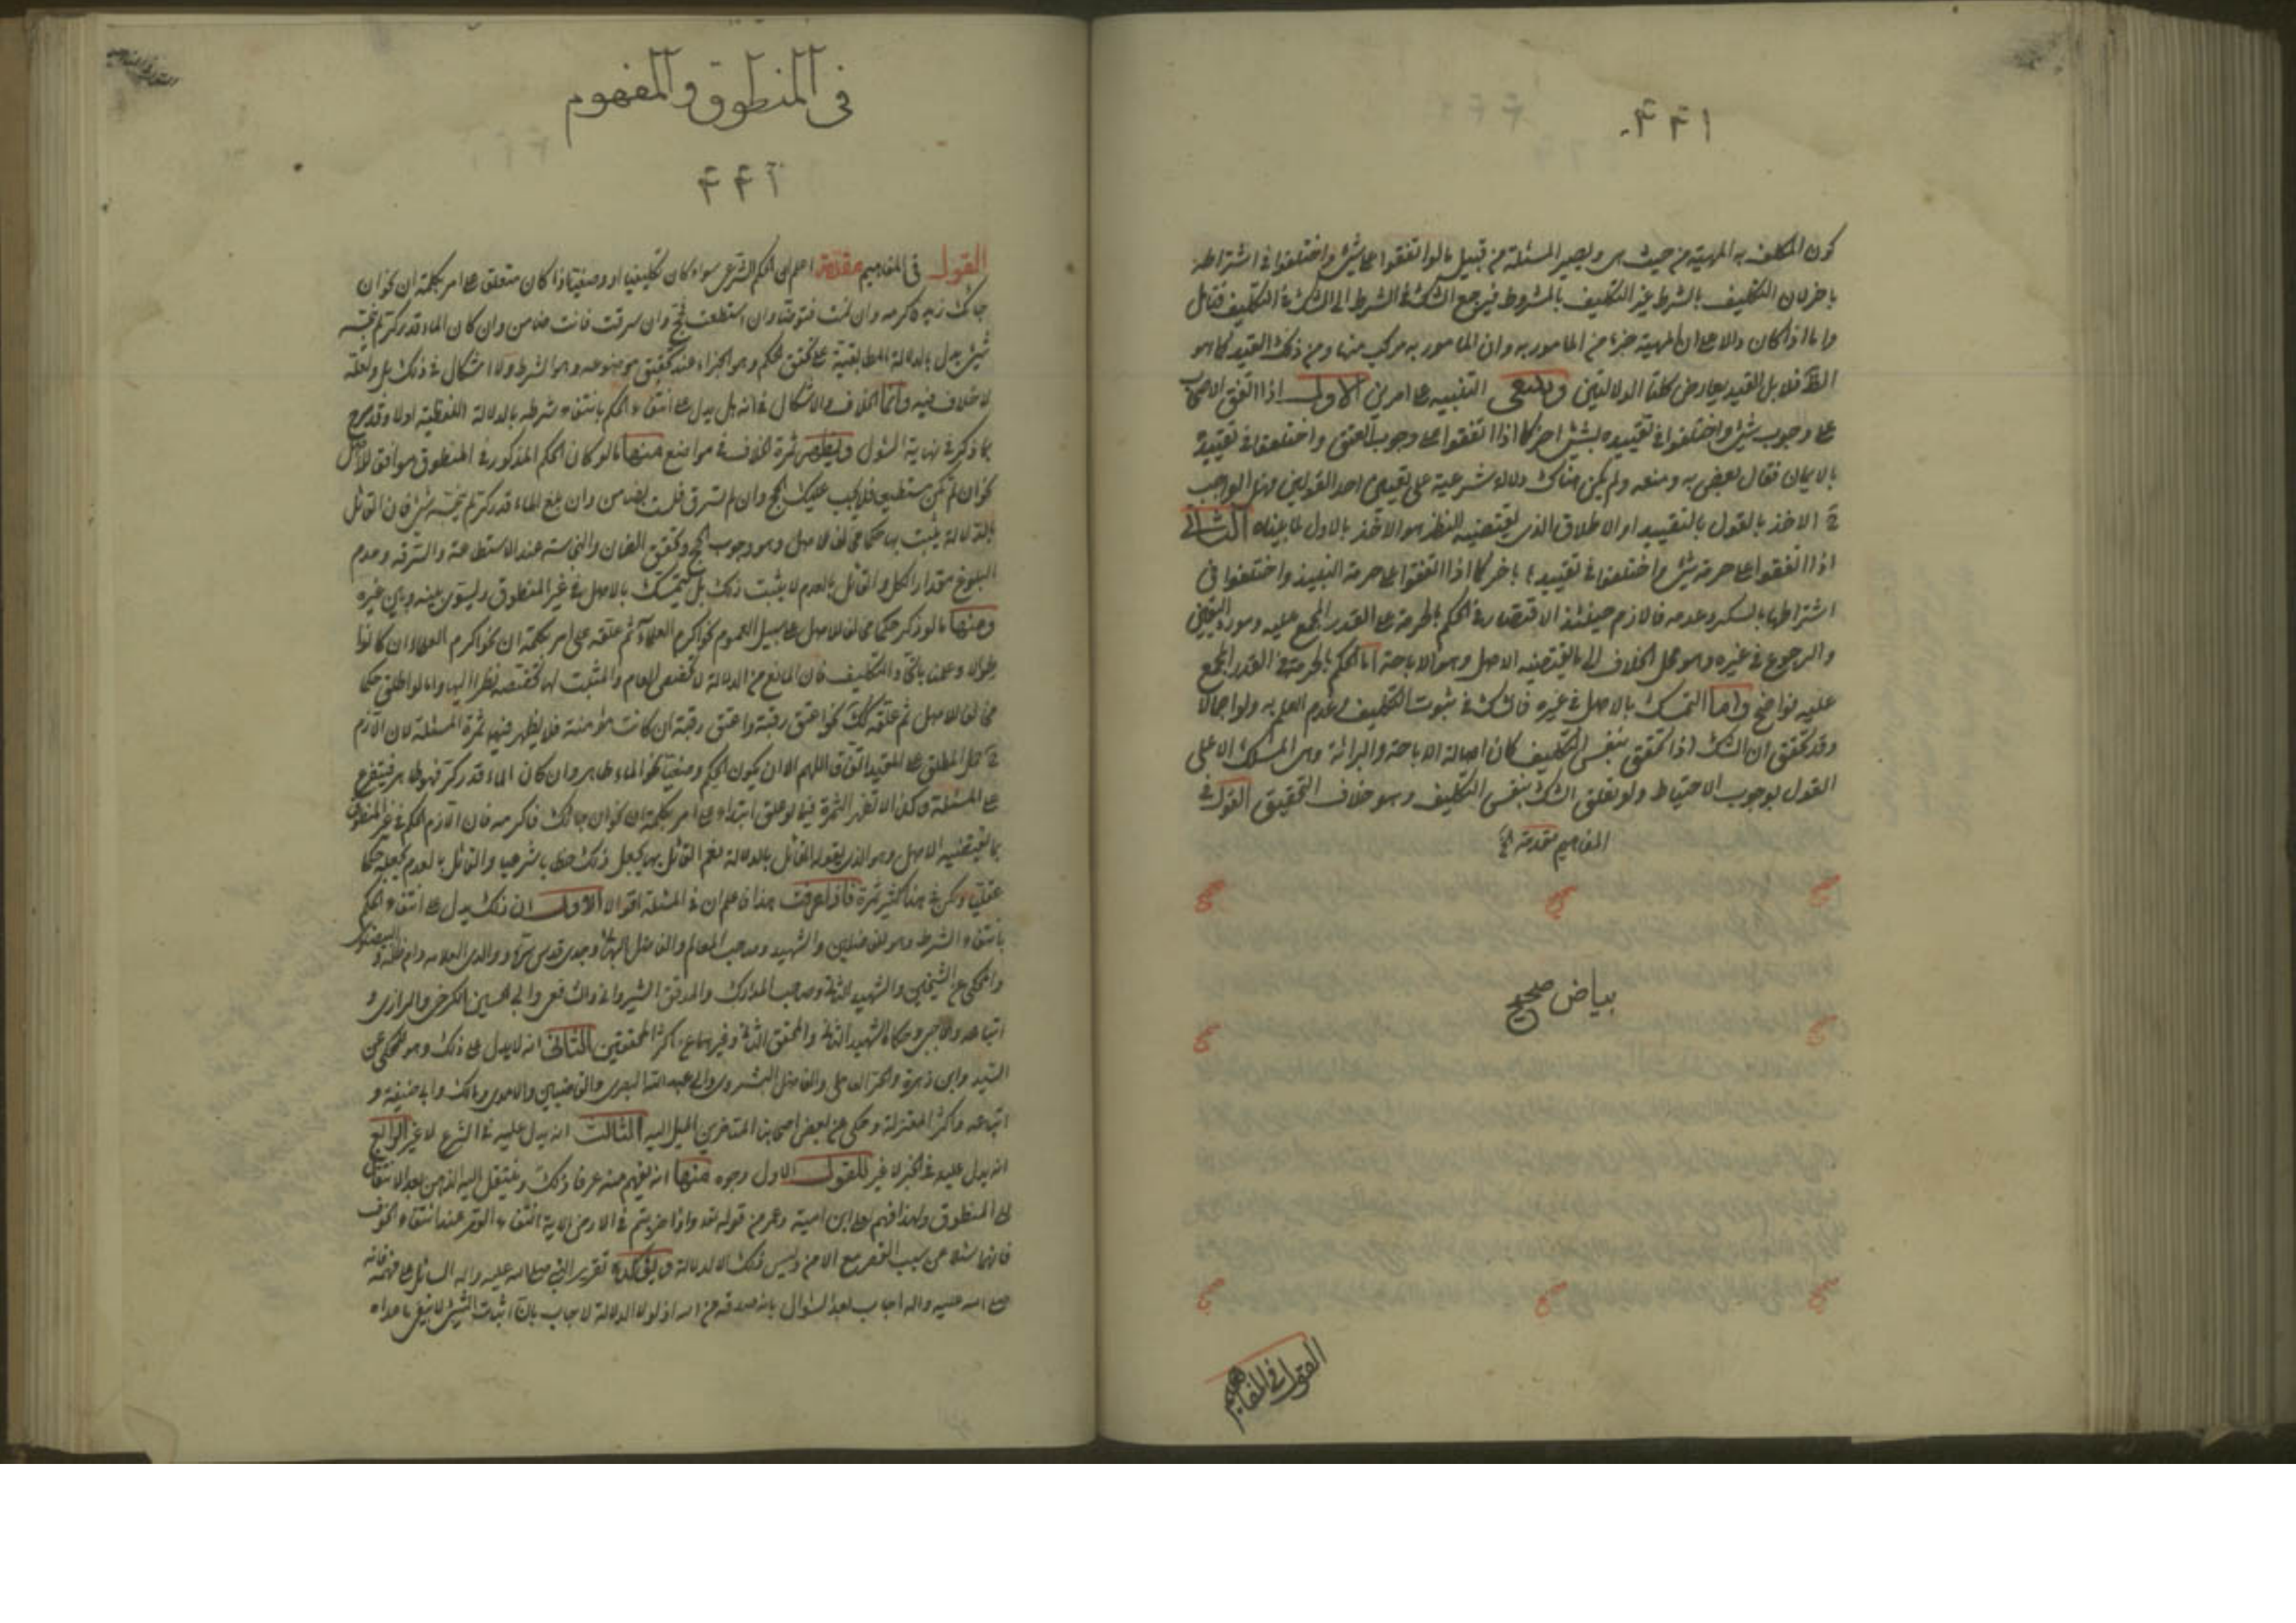 كون المكلف به المهية من حيث هى ويصير المسئلة من قبيل ما لو اتفقوا على شئ واختلفوا فى اشتراطه
باخر لان التكليف بالشرط غير التكليف بالمشروط فيرجع الشك فى الشرط الى الشك فى التكليف فتامل
واما اذا كان دالا على ان المهية جزء من المامور به وان المامور به مركب منها ومن ذلك القيد كما هو
الظ فلا بل القيد يعارض كلتا الدلالتين وينبغى التنبيه على امرين الاول اذا اتفق الاصحاب
على وجوب شئ واختلفوا فى تقييده بشئ اخر كما اذا اتفقوا على وجوب العتق واختلفوا فى تقييده
بالايمان فقال بعض به ومنعه ولم يكن هناك دلالة شرعية على تعيين احد القولين فهل الواجب
ح الاخذ بالقول بالتقييد او الاطلاق الذى يقتضيه النظر هو الاخذ بالاول لما بيناه الثانى
اذا اتفقوا على حرمة شئ واختلفوا فى تقييده باخر كما اذا اتفقوا على حرمة النبيذ واختلفوا فى
اشتراطها بالسكر وعدمه فاللازم حينئذ الاقتصار فى الحكم بالحرمة على القدر المجمع عليه وصورة اليقين
والرجوع فى غيره وهو محل الخلاف الى ما يقتضيه الاصل وهو الاباحة اما الحكم بالحرمة فى القدر المجمع
عليه فواضح واما التمسك بالاصل فى غيره فللشك فى ثبوت التكليف وعدم العلم به ولو اجمالا
وقد تحقق ان الشك اذا تحقق بنفس التكليف كان اصالة الاباحة والبرائة وهى المسلك الا على
القول بوجوب الاحتياط ولو تعلق الشك بنفس التكليف وهو خلاف التحقيق القول فى
المفاهيم مقدمة
بياض صحيح
القول فى المفاهيم
فى المنطوق والمفهوم
القول فى المفاهيم مقدمة اعلم ان الحكم الشرعى سواء كان تكليفيا او وضعيا اذا كان متعلق على امر بكلمة ان نحو ان
جائك زيد فاكرمه وان نمت فتوضا وان استطعت فحج وان سرقت فانت ضامن وان كان الماء قدر كر لم ينجسه
شئ يدل بالدلالة المطابقية على تحقق الحكم وهو الجزاء عند تحقق موضوعه وهو الشرط ولا اشكال فى ذلك بل ولعله
لا خلاف فيه وانما الخلاف والاشكال فى انه هل يدل على انتفاء الحكم بانتفاء شرطه بالدلالة اللفظية اولا وقد صرح
بما ذكر فى نهاية السئول ويظهر ثمرة الخلاف فى مواضع منها ما لو كان الحكم المذكور فى المنطوق موافق للاصل
نحو ان لم تكن مستطيع فلا يجب عليك الحج وان لم تسرق فلست بضامن وان بلغ الماء قدر كر لم ينجسه شئ فان القائل
بالدلالة يثبت بها حكما مخالف للاصل وهو وجوب الحج وتحقق الضمان والنجاسة عند الاستطاعة والسرقة وعدم
البلوغ مقدار الكر والقائل بالعدم لا يثبت ذلك بل يتمسك بالاصل فى غير المنطوق ويستوى بينه وبين غيره
ومنها ما لو ذكر حكما مخالف للاصل على سبيل العموم نحو اكرم العلماء ثم علقه على امر بكلمة ان نحو اكرم العلماء ان كانوا
طوالا وعلمنا باتحاد التكليف فان المانع من الدلالة لا يخصص العام والمثبت لها يخصصه نظرا اليها واما لو اطلق حكما
مخالف للاصل ثم علقه كك نحو اعتق رقبة واعتق رقبة ان كانت مؤمنة فلا يظهر فيها ثمرة المسئلة لان اللازم
ح حمل المطلق على المقيد اتفاقا اللهم الا ان يكون الحكم وضعيا نحو الماء طاهر وان كان الماء قدر كر فهو طاهر فيتفرع
على المسئلة وكذا لا تظهر الثمرة فيما لو علق ابتداء على امر بكلمة ان نحو ان جائك فاكرمه فان اللازم الحكم فى غير المنطوق
بما يقتضيه الاصل وهو الذى يقوله القائل بالدلالة نعم القائل بها يجعل ذلك خطابا شرعيا والقائل بالعدم يجعله حكما
عقليا ولكن فى هذا كثير ثمرة فاذا عرفت هذا فاعلم ان فى المسئلة اقوالا الاول ان ذلك يدل على انتفاء الحكم
بانتفاء الشرط وهو للفاضلين والشهيد وصاحب المعالم والفاضل البهائى وجدى قدس سره ووالدى العلامة دام ظله والبيضاوى
والمحكى عن الشيخين والشهيد الثانى وصاحب المدارك والمدقق الشيروانى والشافعى وابى الحسين الكرخى والرازى و
اتباعه والحاجبى وحكاه الشهيد الثانى والمحقق الثانى وغيرهما عن اكثر المحققين الثانى انه لا يدل على ذلك وهو المحكى عن
السيد وابن زهرة والحر العاملى والفاضل البشروى وابى عبد الله البصرى والقاضيين والامدى ومالك وابى حنيفة و
اتباعه واكثر المعتزلة وحكى عن بعض اصحابنا المتاخرين الميل اليه الثالث انه يدل عليه فى الشرع لا غير الرابع
انه يدل عليه فى الخبر لا غير للقول الاول وجوه منها انه يفهم منه عرفا ذلك وينتقل اليه الذهن بعد الانتقال
الى المنطوق ولهذا فهم يعلى ابن امية وعمر من قوله تعالى واذا ضربتم فى الارض الاية انتفاء القصر عند انتفاء الخوف
فانهما سئلا عن سبب القصر مع الامن وليس ذلك الا لدلالة ويؤكده تقرير النبى صلى الله عليه واله السائل على فهمه فانه
صلى الله عليه واله اجاب بعد السؤال بانه صدقة من الله اذ لولا الدلالة لاجاب بان اثبات الشئ لا ينفى ما عداه